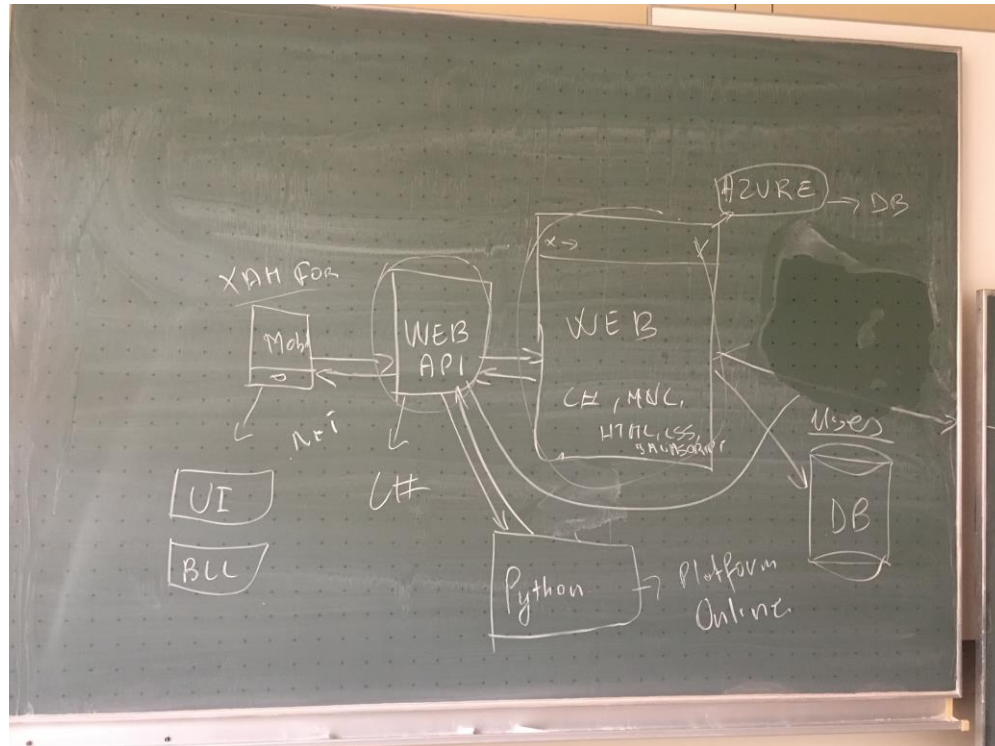 AZURE → DB
XAM FOR
x →
Mob
WEB
API
WEB
C#, MVC,
HTML, CSS,
JAVASCRIPT
Users
C#
UI
DB
BLL
Python → Platform
Online